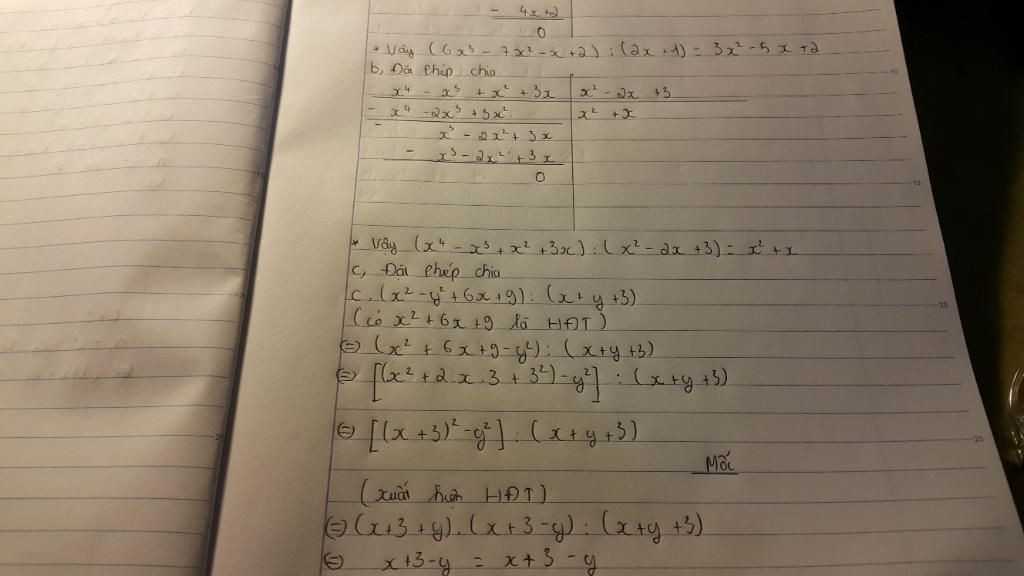 - 4x+2
0
* Vậy (6x³ - 7x² - x + 2) : (2x + 1) = 3x² - 5x + 2
b, Đặt phép chia
x⁴ - x³ + x² + 3x | x² - 2x + 3
- x⁴ - 2x³ + 3x² | x² + x
- x³ - 2x² + 3x
- x³ - 2x² + 3x
0
* Vậy (x⁴ - x³ + x² + 3x) : (x² - 2x + 3) = x² + x
c, Đặt phép chia
c. (x² - y² + 6x + 9) : (x + y + 3)
(có x² + 6x + 9 là HĐT)
⇔ (x² + 6x + 9 - y²) : (x + y + 3)
⇔ [(x² + 2.x.3 + 3²) - y²] : (x + y + 3)
⇔ [(x + 3)² - y²] : (x + y + 3)
(xuất hiện HĐT)
⇔ (x + 3 + y).(x + 3 - y) : (x + y + 3)
⇔ x + 3 - y = x + 3 - y